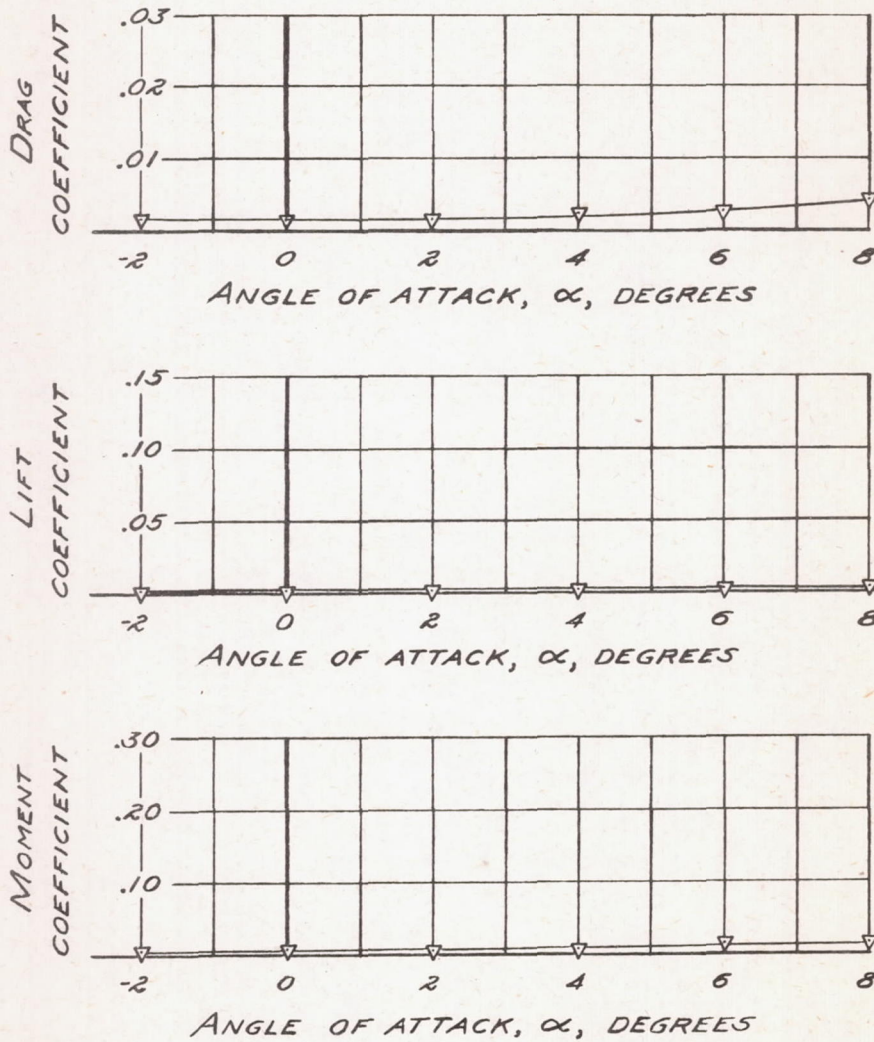 DRAG
COEFFICIENT
.03
.02
.01
-2 0 2 4 6 8
ANGLE OF ATTACK, α, DEGREES
LIFT
COEFFICIENT
.15
.10
.05
-2 0 2 4 6 8
ANGLE OF ATTACK, α, DEGREES
MOMENT
COEFFICIENT
.30
.20
.10
-2 0 2 4 6 8
ANGLE OF ATTACK, α, DEGREES